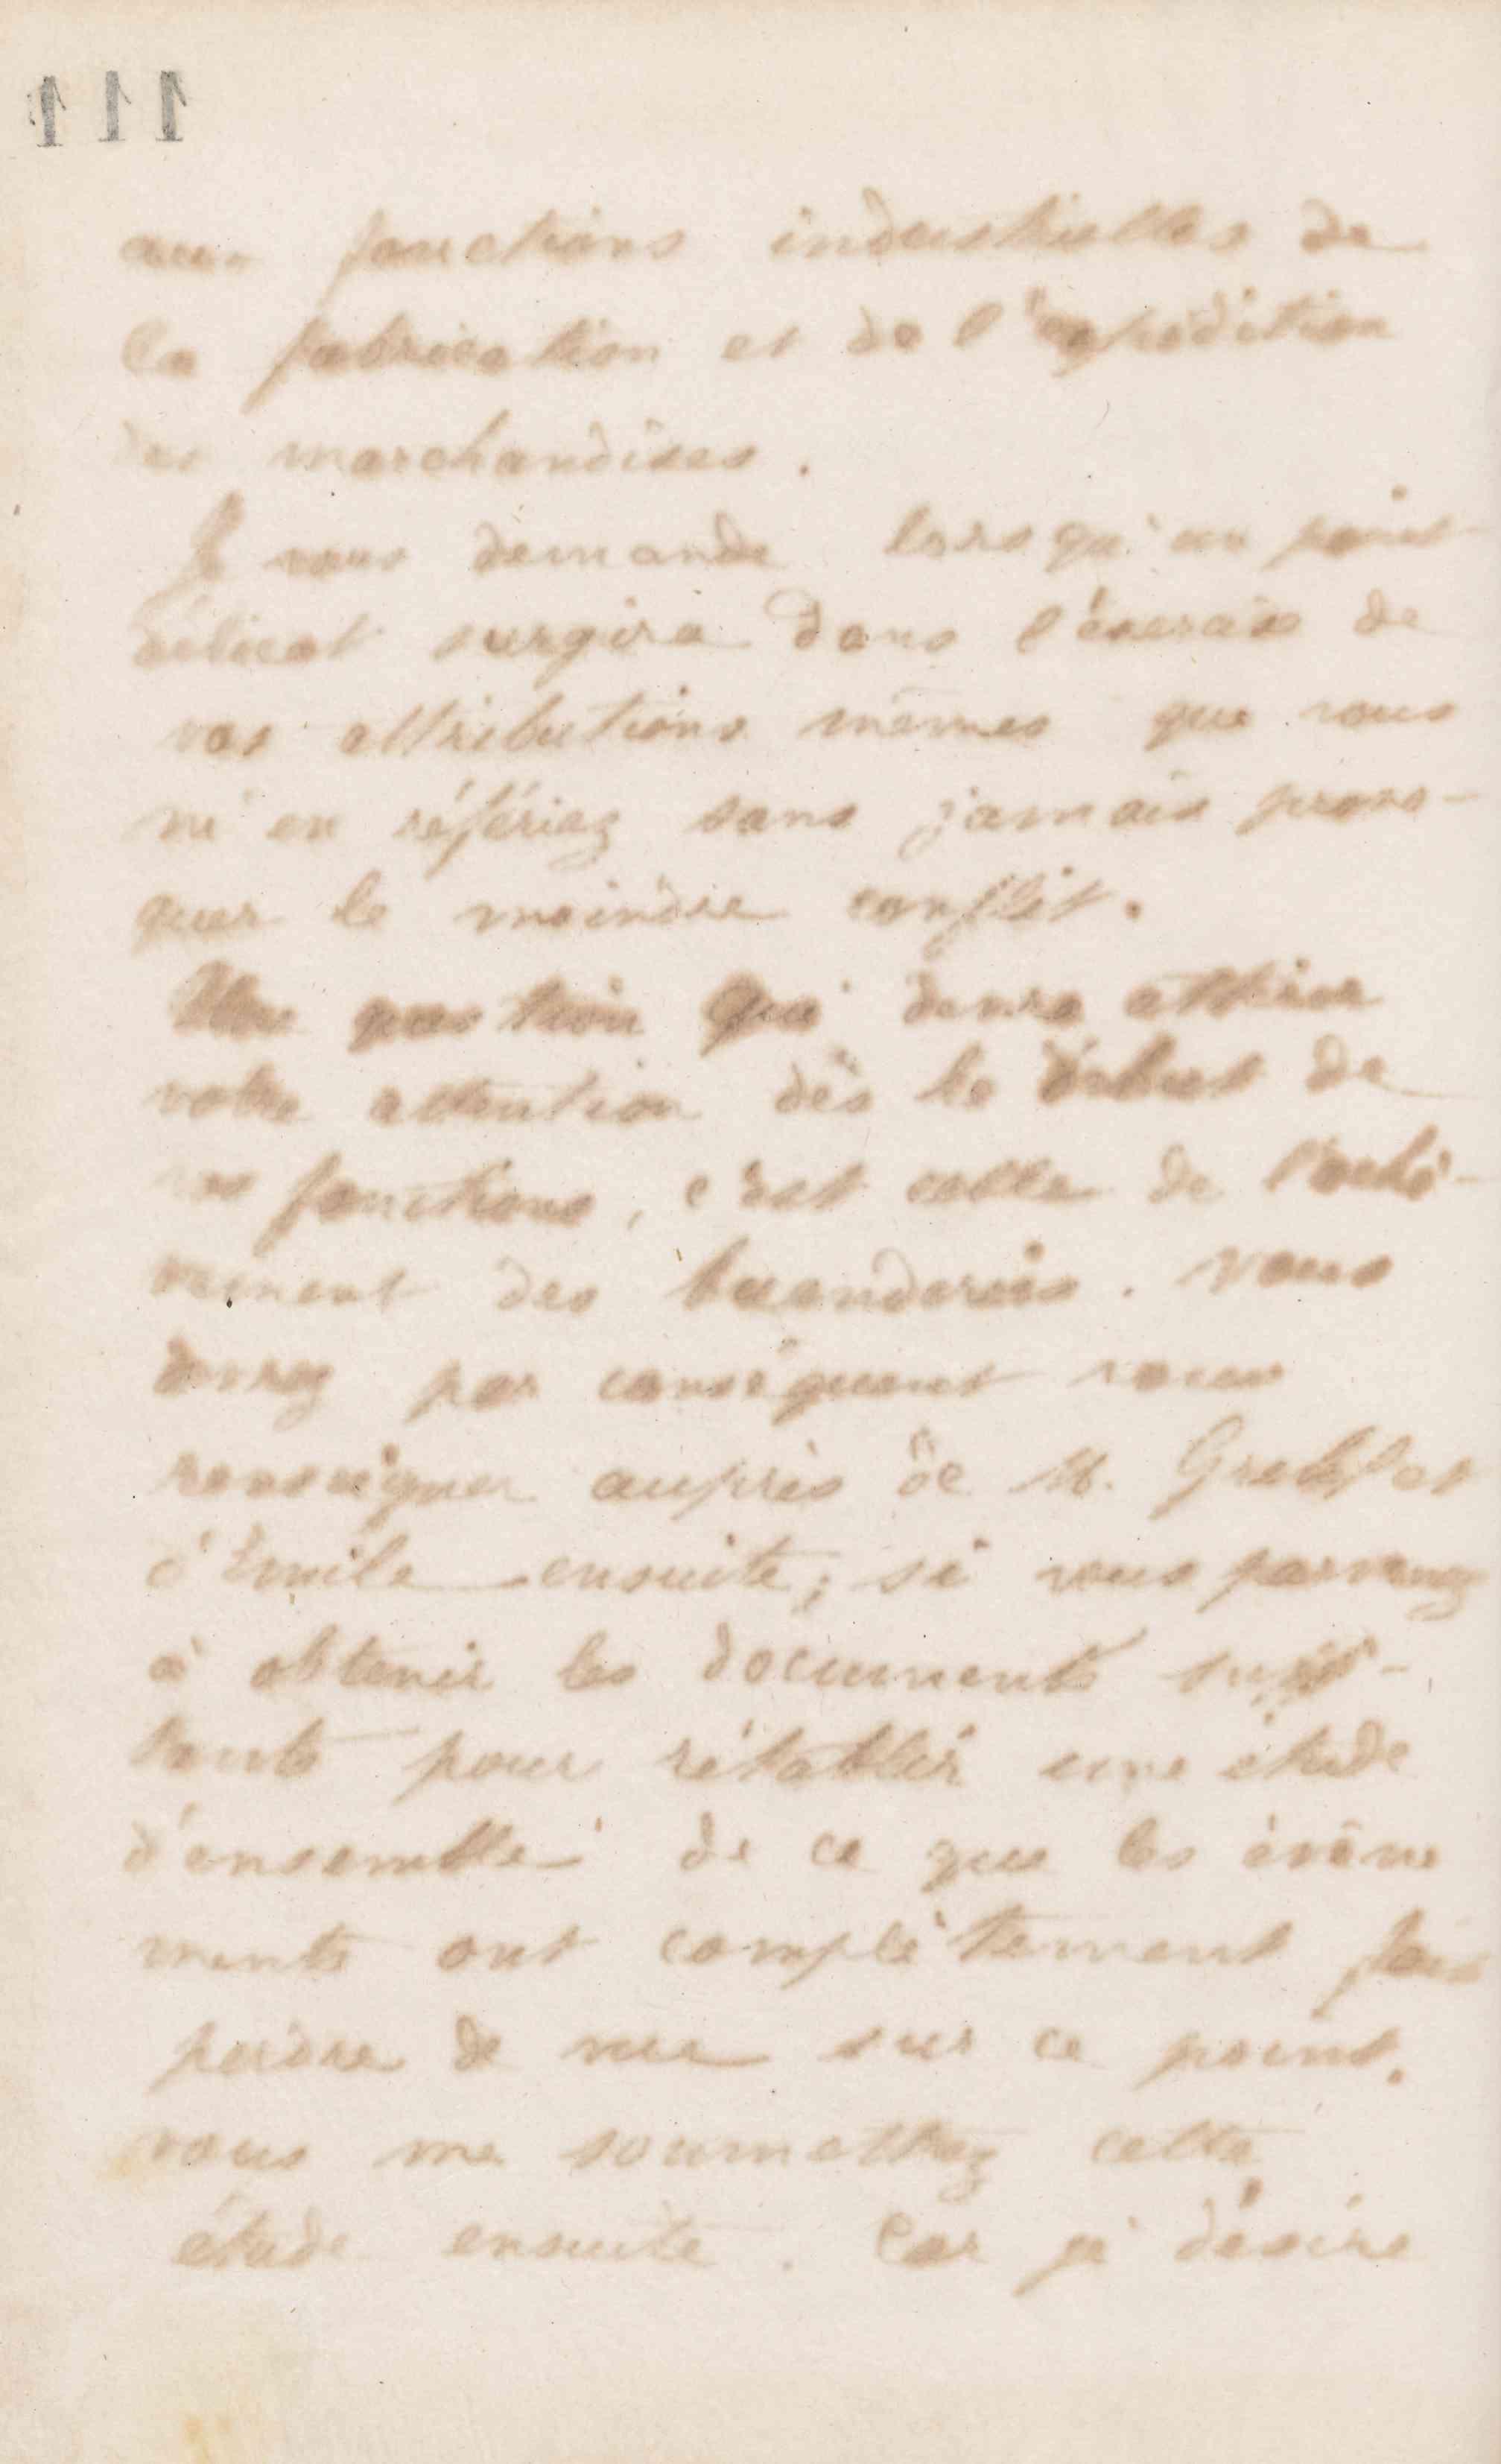 111
aux fonctions industrielles de
la fabrication et de l'expédition
des marchandises.
Je vous demande lorsqu'un point
délicat surgira dans l'exercice de
vos attributions mêmes que vous
m'en référiez sans jamais provo-
quer le moindre conflit.
Une question qui devra attirer
votre attention dès le début de
vos fonctions, c'est celle de l'achè-
vement des buanderies. Vous
devrez par conséquent vous
renseigner auprès de M. et
d'Émile ensuite; si vous parvenez
à obtenir les documents suffi-
sants pour rétablir une étude
d'ensemble de ce que les événe
ments ont complètement fait
perdre de vue sur ce point.
vous me soumettrez cette
étude ensuite. Car je désire